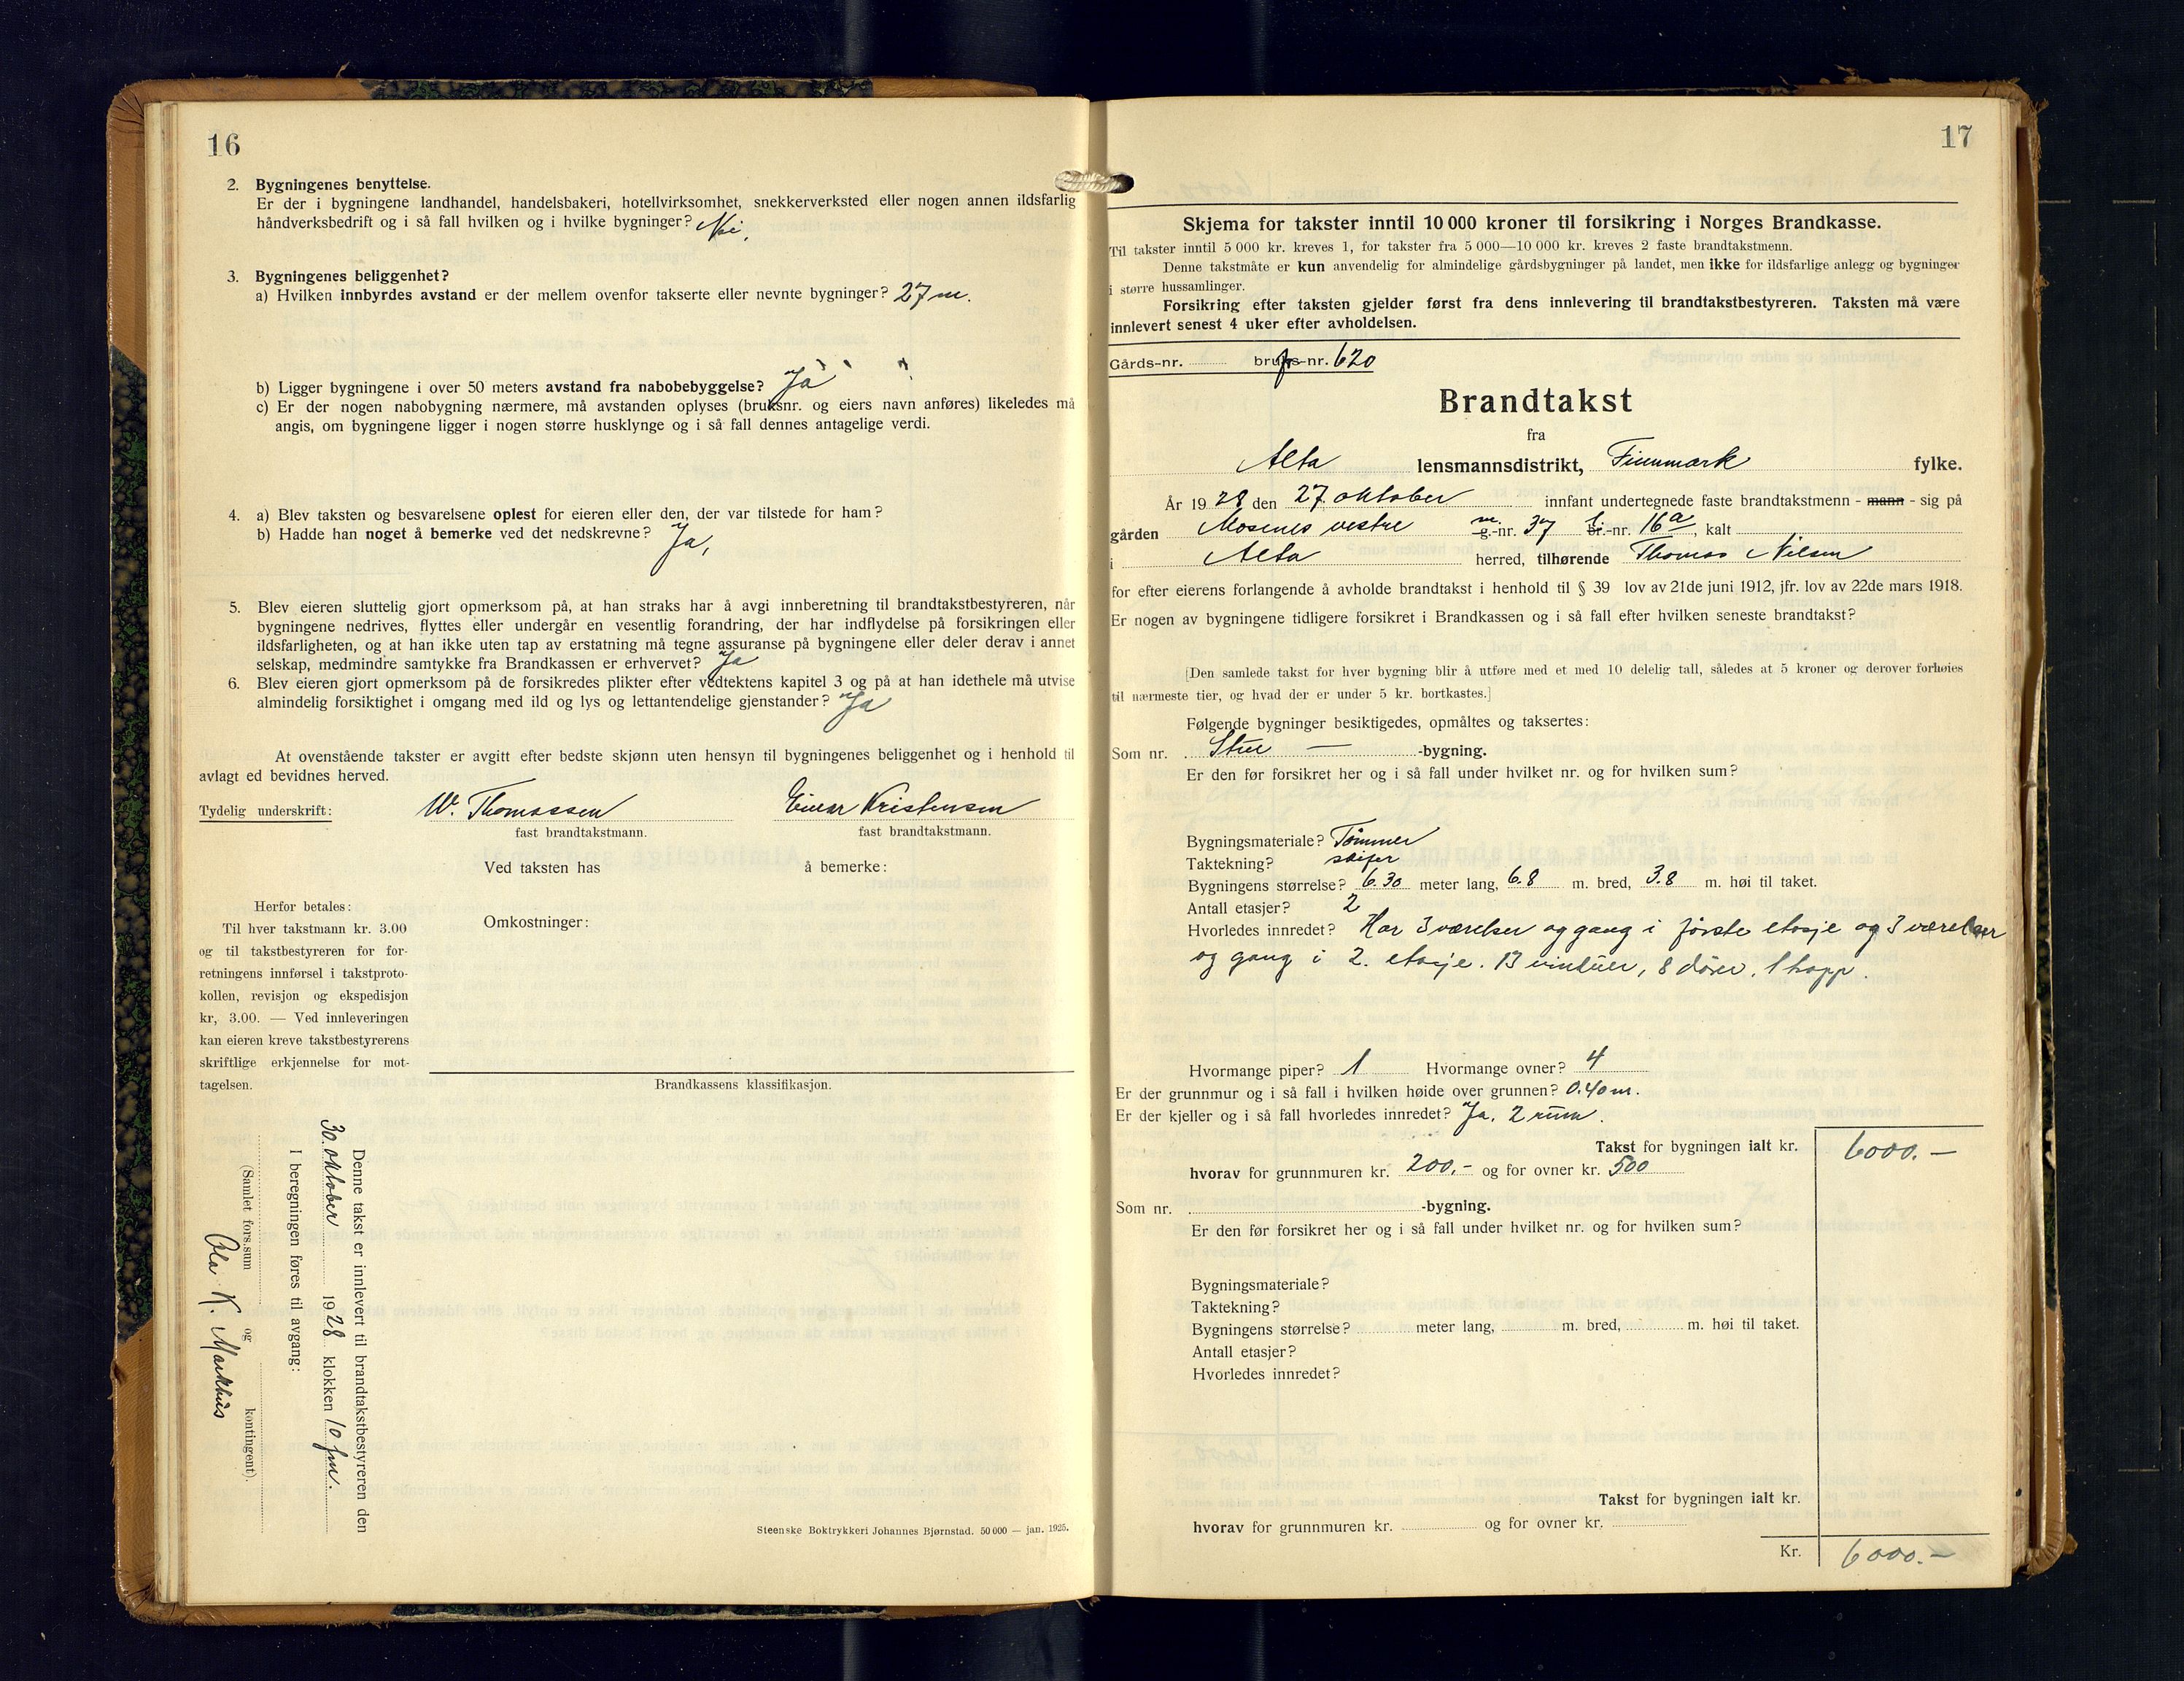 16
2. Bygningenes benyttelse.
Er der i bygningene landhandel, handelsbakeri, hotellvirksomhet, snekkerverksted eller nogen annen ildsfarlig
håndverksbedrift og i så fall hvilken og i hvilke bygninger? Nei.
3. Bygningenes beliggenhet?
a) Hvilken innbyrdes avstand er der mellem ovenfor takserte eller nevnte bygninger? 27 m.
b) Ligger bygningene i over 50 meters avstand fra nabobebyggelse? Ja
c) Er der nogen nabobygning nærmere, må avstanden oplyses (bruksnr. og eiers navn anføres) likeledes må
angis, om bygningene ligger i nogen større husklynge og i så fall dennes antagelige verdi.
4. a) Blev taksten og besvarelsene oplest for eieren eller den, der var tilstede for ham?
b) Hadde han noget å bemerke ved det nedskrevne? Ja,
5. Blev eieren sluttelig gjort opmerksom på, at han straks har å avgi innberetning til brandtakstbestyreren, når
bygningene nedrives, flyttes eller undergår en vesentlig forandring, der har indflydelse på forsikringen eller
ildsfarligheten, og at han ikke uten tap av erstatning må tegne assuranse på bygningene eller deler derav i annet
selskap, medmindre samtykke fra Brandkassen er erhvervet? Ja
6. Blev eieren gjort opmerksom på de forsikredes plikter efter vedtektens kapitel 3 og på at han idethele må utvise
almindelig forsiktighet i omgang med ild og lys og lettantendelige gjenstander? Ja
At ovenstående takster er avgitt efter bedste skjønn uten hensyn til bygningenes beliggenhet og i henhold til
avlagt ed bevidnes herved.
Tydelig underskrift: W. Thomassen Einar Kristensen
fast brandtakstmann. fast brandtakstmann.
Ved taksten has å bemerke:
Herfor betales:
Til hver takstmann kr. 3.00
og til takstbestyreren for for-
retningens innførsel i takstproto-
kollen, revisjon og ekspedisjon
kr, 3.00. — Ved innleveringen
kan eieren kreve takstbestyrerens
skriftlige erkjennelse for mot-
tagelsen.
Omkostninger:
Brandkassens klassifikasjon.
Denne takst er innlevert til brandtakstbestyreren den
30. oktober 1928 klokken 10 fm.
I beregningen føres til avgang:
(Samlet fors.sum og kontingent).
Ola K. Markhus
Steenske Boktrykkeri Johannes Bjørnstad. 50 000 — jan. 1925.
17
Skjema for takster inntil 10 000 kroner til forsikring i Norges Brandkasse.
Til takster inntil 5 000 kr. kreves 1, for takster fra 5 000—10 000 kr. kreves 2 faste brandtakstmenn.
Denne takstmåte er kun anvendelig for almindelige gårdsbygninger på landet, men ikke for ildsfarlige anlegg og bygninger
i større hussamlinger.
Forsikring efter taksten gjelder først fra dens innlevering til brandtakstbestyreren. Taksten må være
innlevert senest 4 uker efter avholdelsen.
Gårds-nr. bruks-nr. 620
Brandtakst
fra
Alta lensmannsdistrikt, Finnmark fylke.
År 1928 den 27. oktober innfant undertegnede faste brandtakstmenn - mann - sig på
gården Mosenes vestre m. g.-nr. 37 l. br.-nr. 16a, kalt
i Alta herred, tilhørende Thomas Nilsen
for efter eierens forlangende å avholde brandtakst i henhold til § 39 lov av 21de juni 1912, jfr. lov av 22de mars 1918.
Er nogen av bygningene tidligere forsikret i Brandkassen og i så fall efter hvilken seneste brandtakst?
[Den samlede takst for hver bygning blir å utføre med et med 10 delelig tall, således at 5 kroner og derover forhøies
til nærmeste tier, og hvad der er under 5 kr. bortkastes.]
Følgende bygninger besiktigedes, opmåltes og taksertes:
Som nr. Stue — -bygning.
Er den før forsikret her og i så fall under hvilket nr. og for hvilken sum?
Bygningsmateriale? Tømmer
Taktekning? skifer
Bygningens størrelse? 6.30 meter lang, 6.8 m. bred, 3.8 m. høi til taket.
Antall etasjer? 2
Hvorledes innredet? Har 3 værelser og gang i første etasje og 3 værelser
og gang i 2. etasje. 13 vinduer, 8 dører, 1 trapp.
Hvormange piper? 1 Hvormange ovner? 4
Er der grunnmur og i så fall i hvilken høide over grunnen? 0.40 m.
Er der kjeller og i så fall hvorledes innredet? Ja. 2 rum.
Takst for bygningen ialt kr. 6000.-
hvorav for grunnmuren kr. 200,- og for ovner kr. 500
Som nr. -bygning.
Er den før forsikret her og i så fall under hvilket nr. og for hvilken sum?
Bygningsmateriale?
Taktekning?
Bygningens størrelse? meter lang, m. bred, m. høi til taket.
Antall etasjer?
Hvorledes innredet?
Takst for bygningen ialt kr.
hvorav for grunnmuren kr. og for ovner kr.
Kr. 6000.-